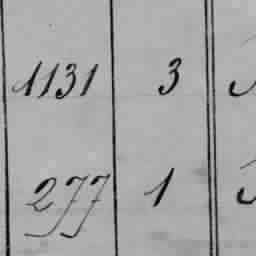 1131 3
277 1